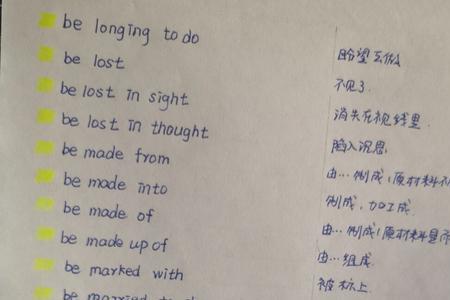 be longing to do 盼望去做
be lost 不见了.
be lost in sight 消失在视线里.
be lost in thought 陷入沉思.
be made from 由…制成(原材料不
be made into 制成, 加工成.
be made of 由…制成(原材料是
be made up of 由…组成.
be marked with 被标上.
be married to